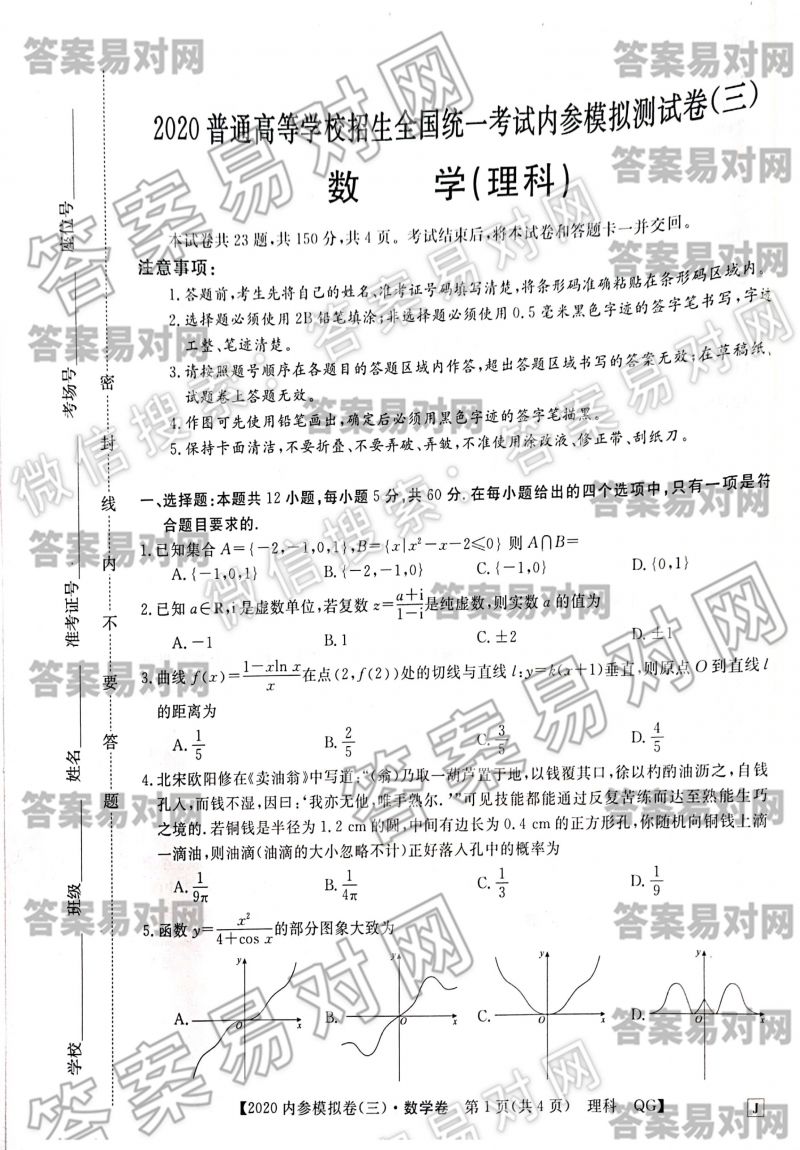 2020普通高等学校招生全国统一考试内参模拟测试卷(三)
数 学(理科)
本试卷共23题,共150分,共4页。考试结束后,将本试卷和答题卡一并交回。
注意事项:
1.答题前,考生先将自己的姓名、准考证号码填写清楚,将条形码准确粘贴在条形码区域内。
2.选择题必须使用2B铅笔填涂;非选择题必须使用0.5毫米黑色字迹的签字笔书写,字迹
工整、笔迹清楚。
3.请按照题号顺序在各题目的答题区域内作答,超出答题区域书写的答案无效;在草稿纸、
试题卷上答题无效。
4.作图可先使用铅笔画出,确定后必须用黑色字迹的签字笔描黑。
5.保持卡面清洁,不要折叠、不要弄破、弄皱,不准使用涂改液、修正带、刮纸刀。
一、选择题:本题共12小题,每小题5分,共60分.在每小题给出的四个选项中,只有一项是符
合题目要求的.
1.已知集合A={-2,-1,0,1},B={x|x²-x-2≤0} 则A∩B=
A.{-1,0,1} B.{-2,-1,0} C.{-1,0} D.{0,1}
2.已知a∈R,i是虚数单位,若复数z=\frac{a+i}{1-i}是纯虚数,则实数a的值为
A.-1 B.1 C.±2 D.±1
3.曲线f(x)=\frac{1-xln x}{x}在点(2,f(2))处的切线与直线l:y=k(x+1)垂直,则原点O到直线l
的距离为
A.\frac{1}{5} B.\frac{2}{5} C.\frac{3}{5} D.\frac{4}{5}
4.北宋欧阳修在《卖油翁》中写道:“(翁)乃取一葫芦置于地,以钱覆其口,徐以杓酌油沥之,自钱
孔入,而钱不湿,因曰:‘我亦无他,唯手熟尔.’”可见技能都能通过反复苦练而达至熟能生巧
之境的.若铜钱是半径为1.2 cm的圆,中间有边长为0.4 cm的正方形孔,你随机向铜钱上滴
一滴油,则油滴(油滴的大小忽略不计)正好落入孔中的概率为
A.\frac{1}{9π} B.\frac{1}{4π} C.\frac{1}{3} D.\frac{1}{9}
5.函数y=\frac{x²}{4+cos x}的部分图象大致为
A. y O x B. y O x C. y O x D. y O x
【2020内参模拟卷(三)·数学卷 第1页(共4页) 理科 QG】
J
学校 班级 姓名 准考证号 考场号 座位号
密 封 线 内 不 要 答 题
微信搜索:答案易对网
微信搜索:答案易对网
答案易对网
答案易对网
答案易对网
答案易对网
答案易对网
答案易对网
答案易对网
答案易对网
答案易对网
答案易对网
答案易对网
答案易对网
答案易对网
答案易对网